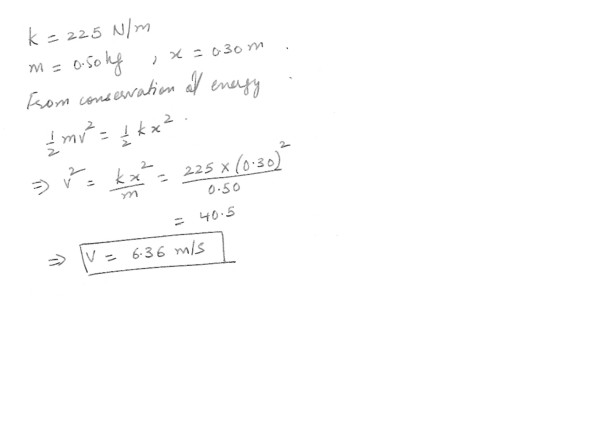 k = 225 N/m
m = 0.50 kg , x = 0.30 m .
From conservation of energy .
½ mv² = ½ kx² .
⇒ v² = kx²/m = 225 × (0.30)²/0.50
= 40.5
⇒ V = 6.36 m/s